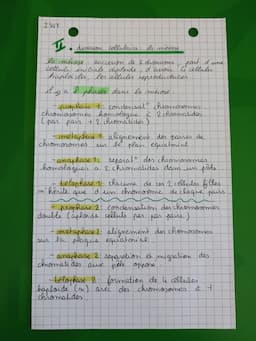 II. division cellulaire : la méiose
la méiose succession de 2 divisions, part d'une
cellule initiale diploïde, d'avoir 4 cellules
haploïdes, les cellules reproductrices
il y a 8 phases dans la méiose.
- prophase 1 : condensat° chromosomes
chromosomes homologue à 2 chromatides
(par pairs + 2 chromatides)
- métaphase 1 : alignement des paires de
chromosomes sur le plan équatorial
- anaphase 1 : separat° des chromosomes
homologues à 2 chromatides dans un pôle
- telophase 1 : chacune de ces 2 cellules filles
hérite que d'un chromosome de chaque paires
- prophase 2 : condensation des chromosomes
double (dans cellule pas par paires)
- métaphase 2 : alignement des chromosomes
sur la plaque équatorial
- anaphase 2 séparation et migration des
chromatides aux pôle opposé
- telophase II : formation de 4 cellules
haploïde (n) avec des chromosomes à 1
chromatides.